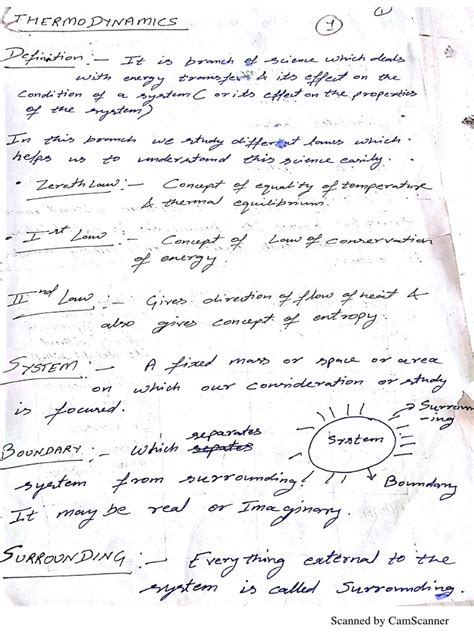 THERMODYNAMICS
1
1
Definition :- It is branch of science which deals
with energy transfer & its effect on the
condition of a system ( or its effect on the properties
of the system)
In this branch we study different laws which
helps us to understand this science easily.
• Zeroth Law :- Concept of equality of temperature
& thermal equilibrium.
• Ist Law :- Concept of Law of conservation
of energy
IInd Law :- Gives direction of flow of heat &
also gives concept of entropy.
SYSTEM :- A fixed mass or space or area
on which our consideration or study
is focused.
Surroun
-ing
System
Boundary
BOUNDARY :- Which separates
system from surrounding!
It may be real or Imaginary.
SURROUNDING :- Everything external to the
system is called Surrounding.
Scanned by CamScanner